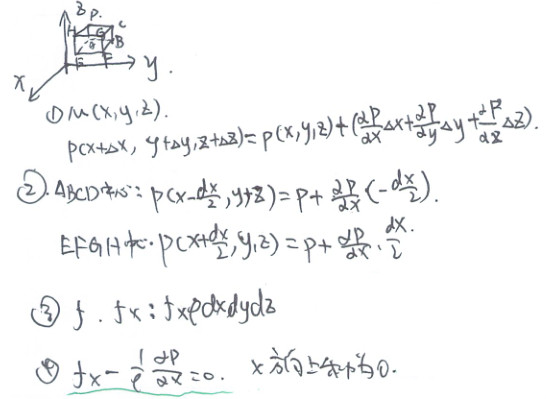 z
D
C
H
G
B
E
F
x
y.
① M(x,y,z).
p(x+Δx, y+Δy, z+Δz) = p(x,y,z) + (∂p/∂x Δx + ∂p/∂y Δy + ∂p/∂z Δz).
②. ABCD中心: p(x-dx/2, y, z) = p + ∂p/∂x (-dx/2).
EFGH中心. p(x+dx/2, y, z) = p + ∂p/∂x · dx/2.
③ f. fx: fxρdxdydz
④ fx - 1/ρ ∂p/∂x = 0. x方向上合力为0.